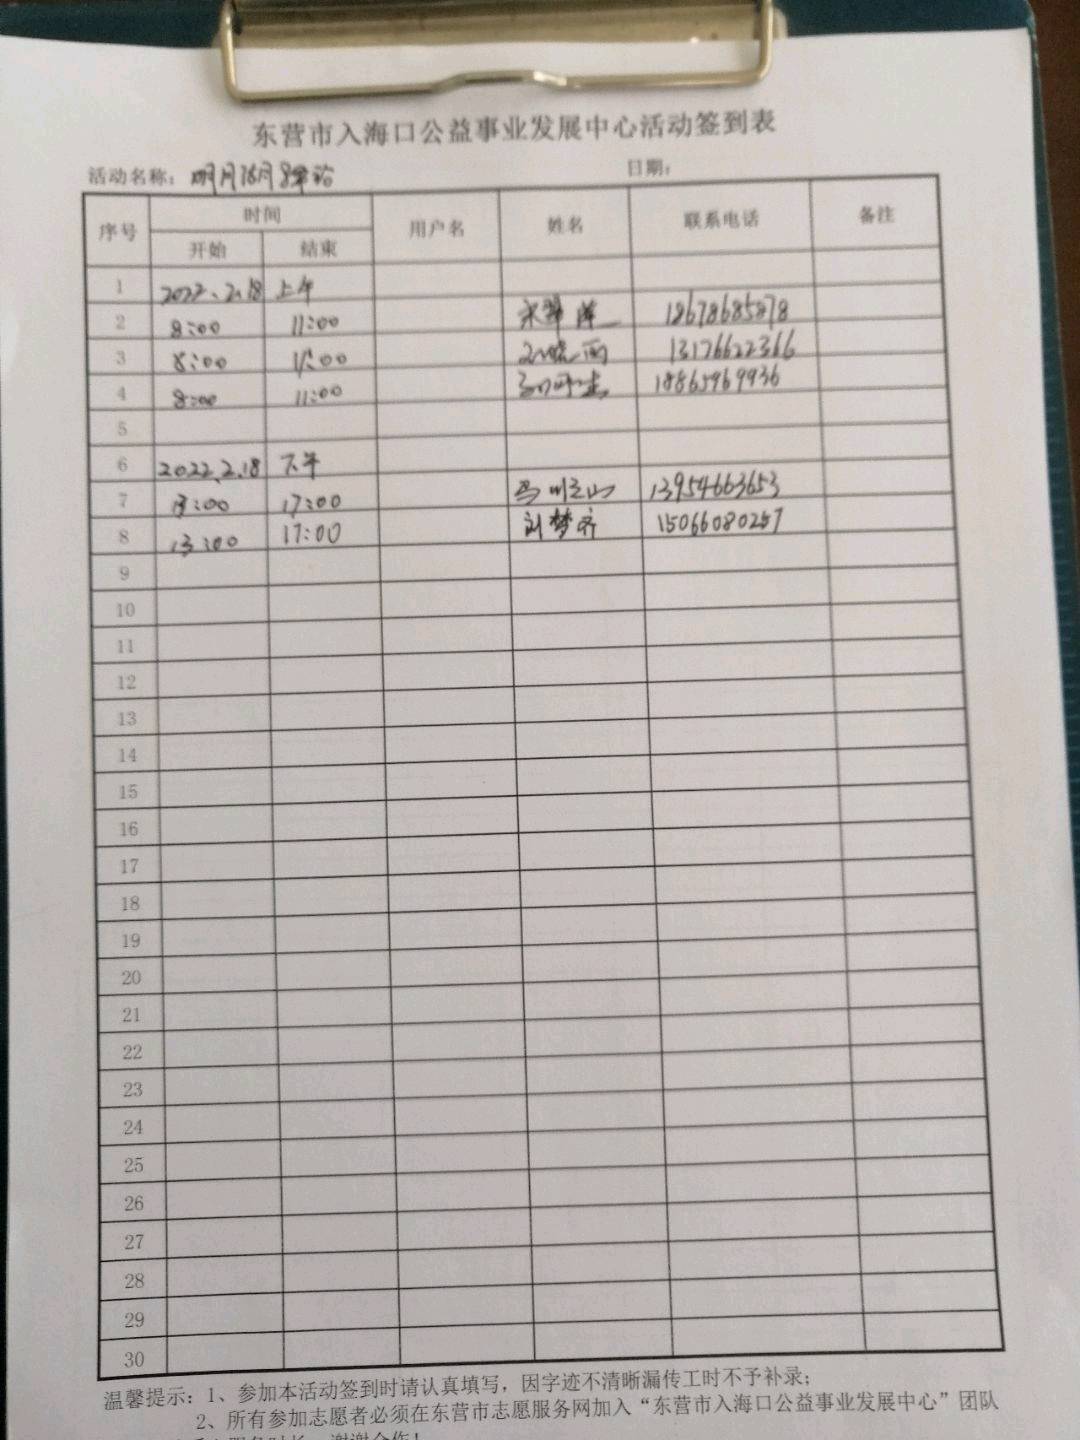 东营市入海口公益事业发展中心活动签到表
活动名称： 明月湖月驿站 日期：
序号 时间 用户名 姓名 联系电话 备注
开始 结束
1 2022.2.18 上午
2 8:00 11:00 18678685878
3 8:00 11:00 13176622366
4 8:00 11:00 18865969936
5
6 2022.2.18 下午
7 13:00 17:00 13954663653
8 13:00 17:00 刘梦齐 15066080257
9
10
11
12
13
14
15
16
17
18
19
20
21
22
23
24
25
26
27
28
29
30
温馨提示：1、参加本活动签到时请认真填写，因字迹不清晰漏传工时不予补录；
2、所有参加志愿者必须在东营市志愿服务网加入“东营市入海口公益事业发展中心”团队